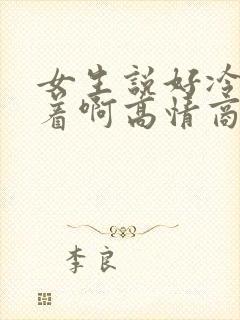 女生说好冷
着啊高情商
李良